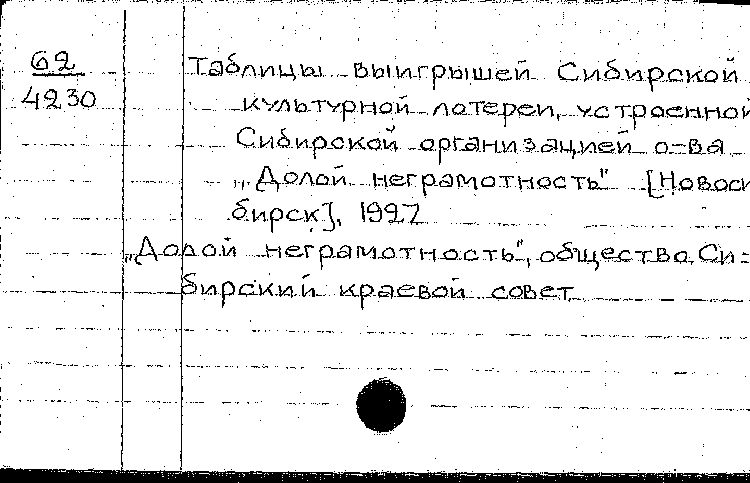 62
4230
Таблицы выигрышей Сибирской
культурной лотереи, устроенной
Сибирской организацией о-ва
„Долой неграмотность" [Новоси
бирск], 1927
„Долой неграмотность", общество. Си=
бирский краевой совет